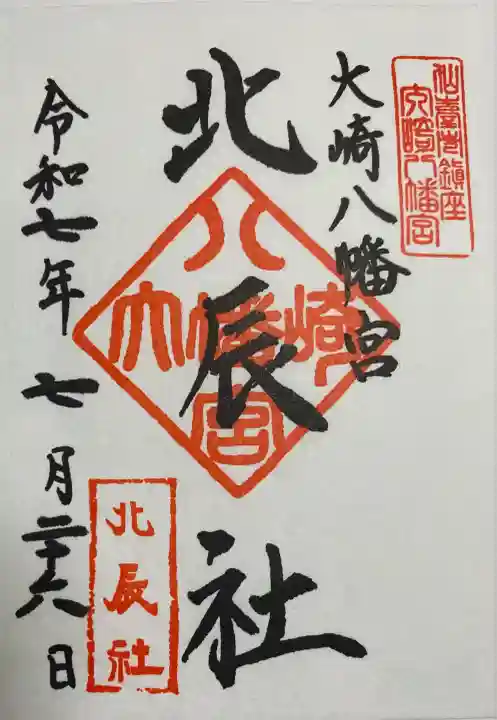 仙臺鎮座
大崎八幡宮
大崎八幡宮
北辰社
大崎八幡宮
北辰社
令和七年七月二十六日